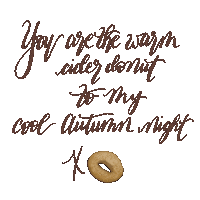 You are the warm
cider donut
to my
cool Autumn night
XO